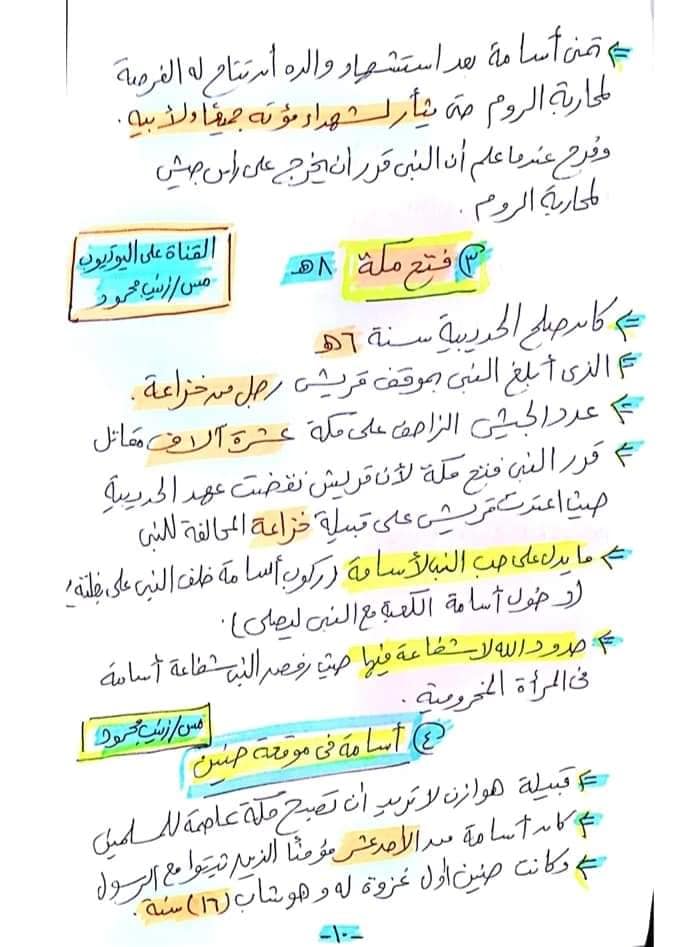 ⇐ تمنى أسامة بعد استشهاد والده أن تتاح له الفرصة
لمحاربة الروم حتى يثأر لشهداء مؤتة جميعًا ولأبيه.
وفرح عندما علم أن النبى قرر أن يخرج على رأس جيش
لمحاربة الروم.
القناة على اليوتيوب
مس/زينب محمود
③ فتح مكة ٨هـ
⇐ كان صلح الحديبية سنة ٦هـ
⇐ الذى أبلغ النبى بموقف قريش رجل من خزاعة.
⇐ عدد الجيش الزاحف على مكة عشرة آلاف مقاتل
⇐ قرر النبى فتح مكة لأن قريش نقضت عهد الحديبية
حيث اعتدت قريش على قبيلة خزاعة المحالفة للنبى
⇐ ما يدل على حب النبى لأسامة (ركوب أسامة خلف النبى على بغلته/
(دخول أسامة الكعبة مع النبى ليصلى).
⇐ حدود الله لا شفاعة فيها حيث رفض النبى شفاعة أسامة
فى المرأة المخزومية.
مس/زينب محمود
④ أسامة فى موقعة حنين
⇐ قبيلة هوازن لا تريد أن تصبح مكة عاصمة للمسلمين
⇐ كان أسامة من الأحد عشر مؤمنًا الذين ثبتوا مع الرسول
⇐ وكانت حنين أول غزوة له وهو شاب (١٦) سنة.
-١٠-